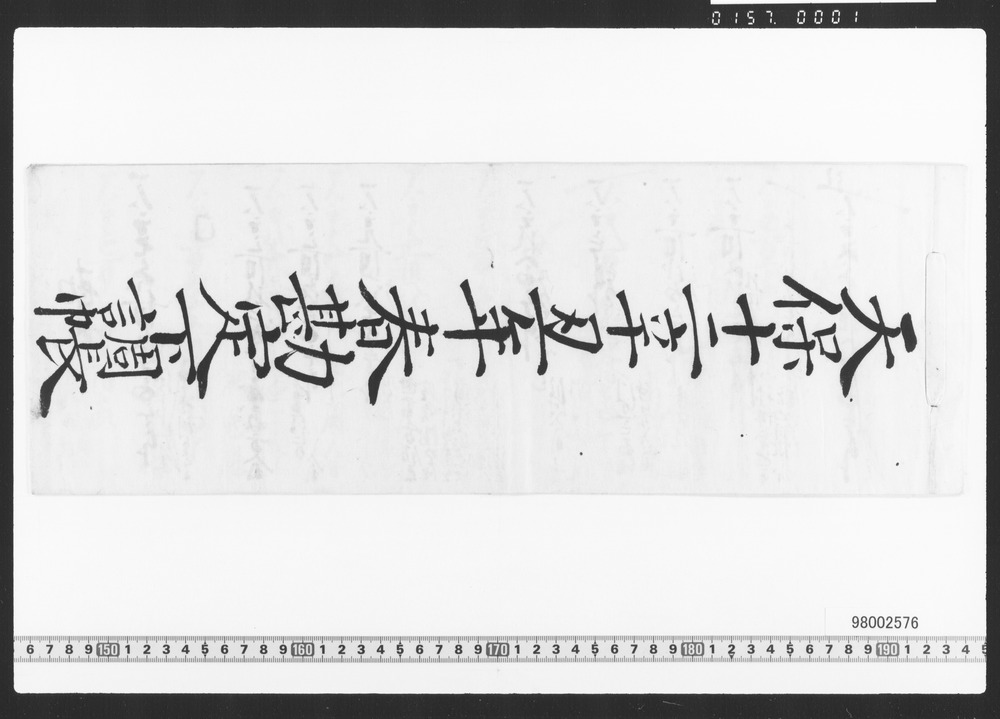 0157.0001
天保十二辛丑年春勘定人下調帳
98002576
6 7 8 9 150 1 2 3 4 5 6 7 8 9 160 1 2 3 4 5 6 7 8 9 170 1 2 3 4 5 6 7 8 9 180 1 2 3 4 5 6 7 8 9 190 1 2 3 4 5